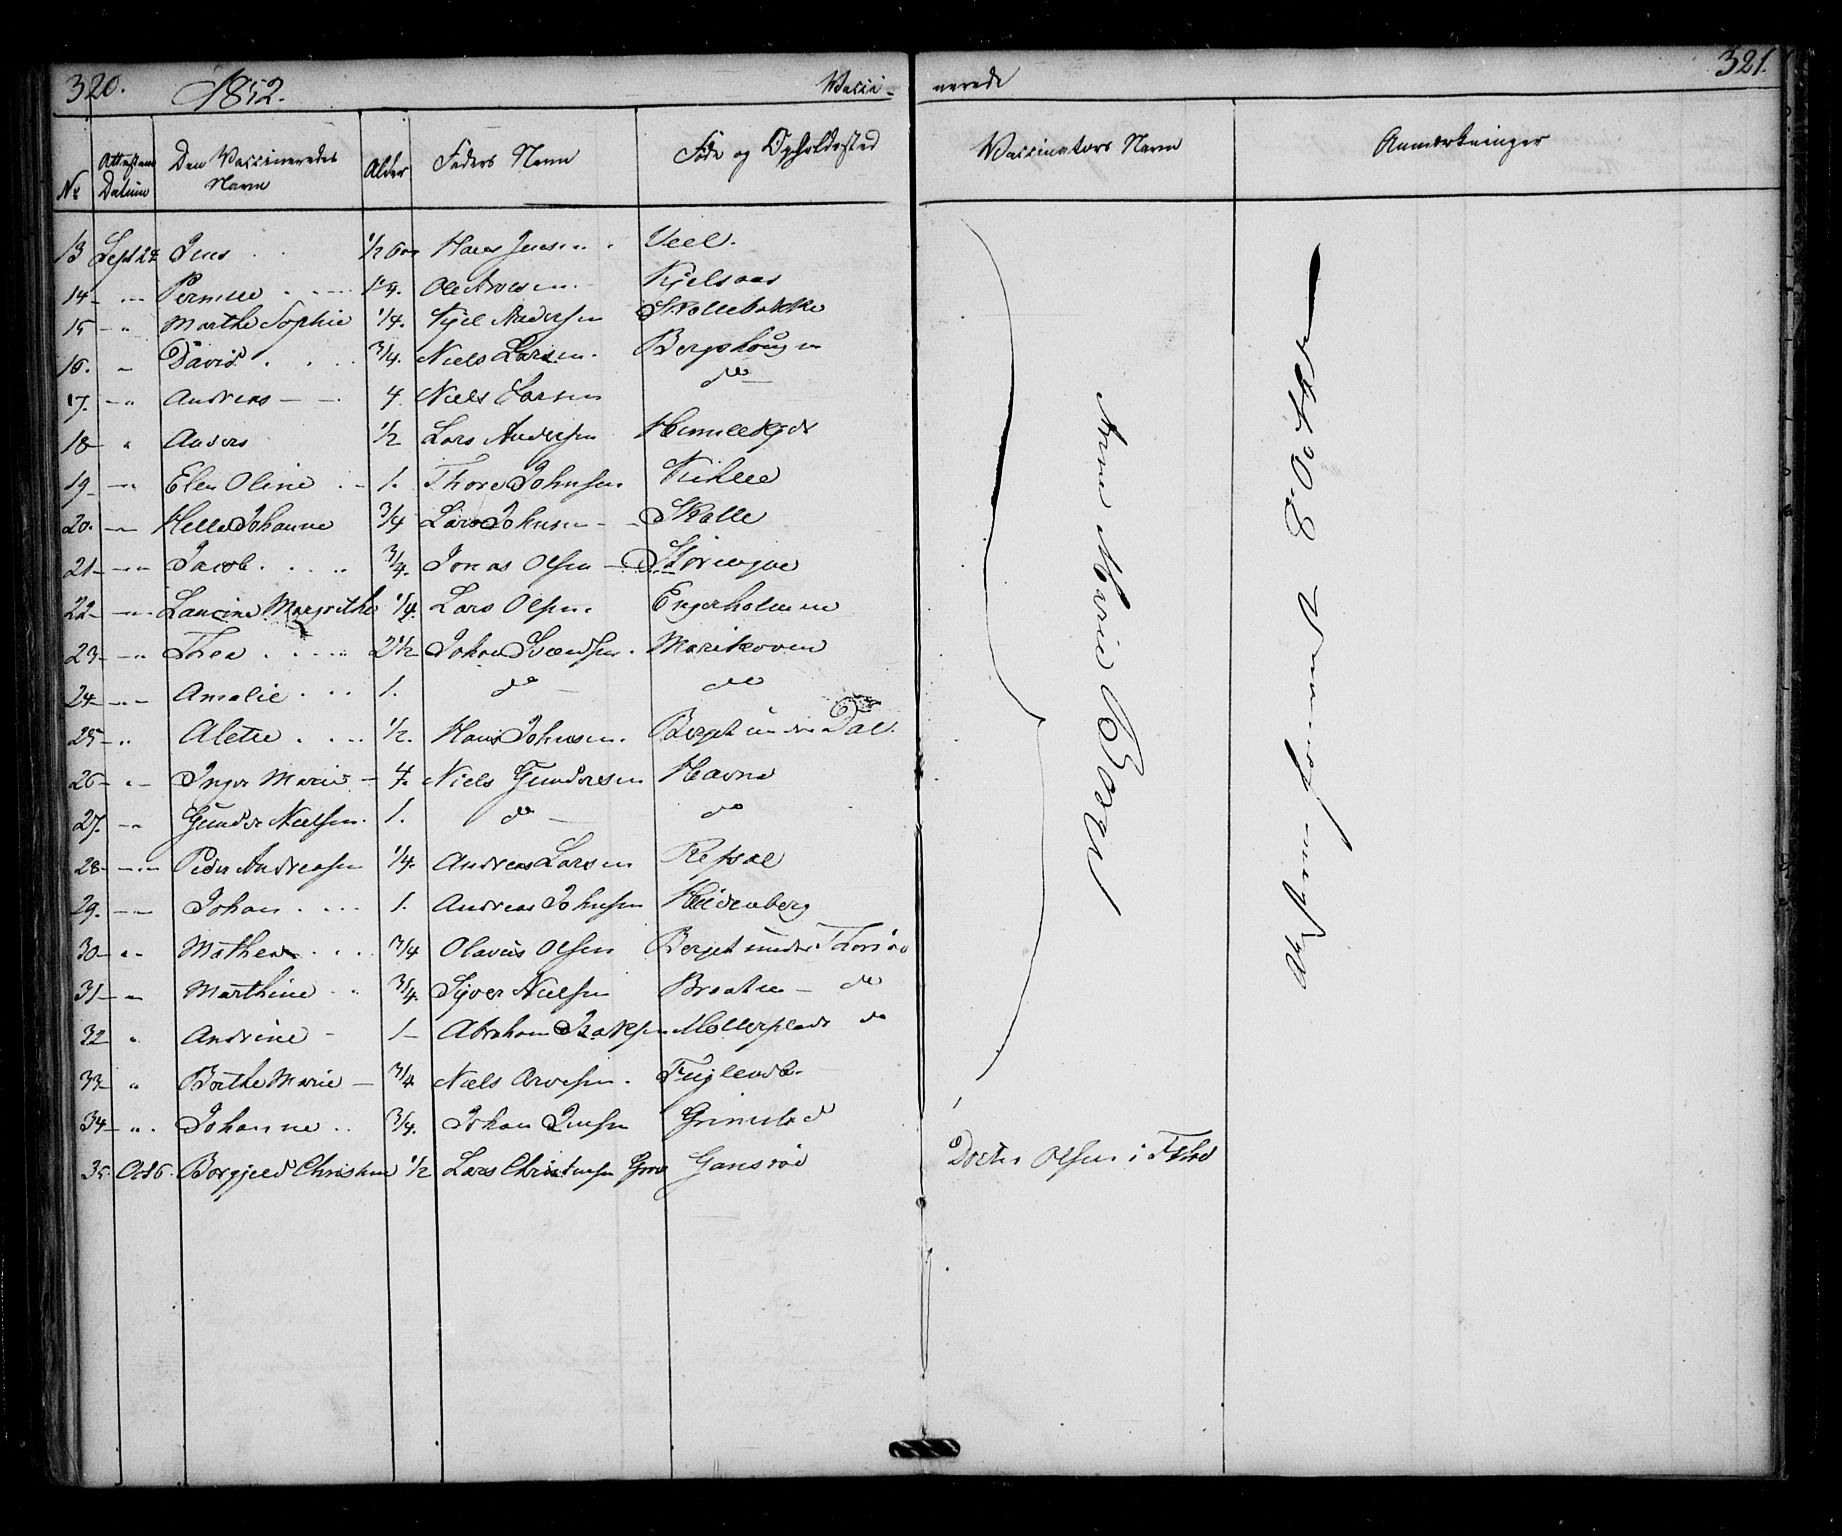 320. 1852. Vacci- nerede 321.
Nr Attestens Datum Den Vaccineredes Navn Alder Faders Navn Føde og Opholdssted Vaccinators Navn Anmærkninger
13 Sept 27 Jens 1/2 Hans Jensen. Veel.
14 - " Pernille 1/4. Ole Arvesen. Kjelsaas
15 - " Marthe Sophie 1/4. Kjel Andersen Skollebakke
16. - David 3/4. Niels Larsen. Bergshougen
17. - " Andreas - 4 Niels Larsen do
18 - " Anders 1/2 Lars Andersen
19 - " Elen Oline 1. Thore Johnsen
20. - Helle Johanne 3/4 Lars Johnsen - Skolle
21 - " Jacob 3/4. Jonas Olsen -
22 - " Laurine Margrethe 1/4. Lars Olsen. Engerholmen
23 - " Thea 2 1/2 Johan Svendsen. Marikoven
24 - " - Amalie 1. do - do
25 - " Alette 1/2. Hans Johnsen. Berget under Dal.
26 - " - Inger Marie - 4. Niels Gundersen Havne
27. - " Gunder Nielsen. 1. do - do
28 - " - Peder Andreassen 1/4. Andreas Larsen Refsal
29. - - Johan 1. Andreas Johnsen Heidenberg
30 - " - Mathea 3/4 Olavus Olsen Berget under Thorsø
31 - " Marthine 3/4. Syver Nielsen Braaten - do
32 " Andrine - 1 - Abraham Isaksen Møllerplads do
33 - " Berthe Marie - 3/4 Niels Arvesen. Fuglevik.
34 - ". Johanne 3/4. Johan Jensen Grimstad
35. Oct 6. Borgjeld Christine 1/2 Lars Christensen Gansrød Doctor Olsen i Fstad
Anne Marie
Attesten 8 Oct